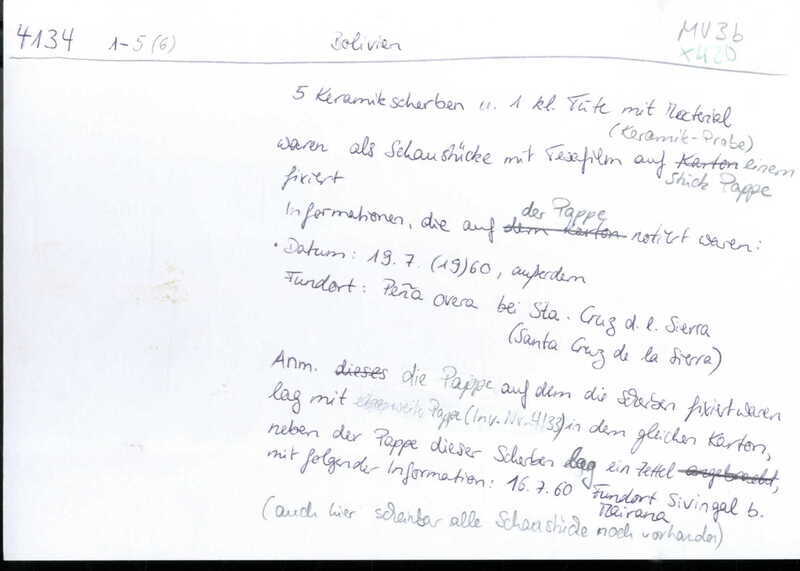 4134 1-5 (6) Bolivien MV3b
x420
5 Keramikscherben u. 1 kl. Tüte mit Material
(Keramik-Probe)
waren als Schaustücke mit Tesafilm auf Karton einem
Stück Pappe
fixiert
der Pappe
Informationen, die auf dem Karton notiert waren:
• Datum: 19.7. (19)60, außerdem
Fundort: Peña overa bei Sta. Cruz d. l. Sierra
(Santa Cruz de la Sierra)
Anm. dieses die Pappe auf dem die Scherben fixiert waren
lag mit Pappe (Inv. Nr. 4133) in dem gleichen Karton,
neben der Pappe dieser Scherben lag ein Zettel angebracht,
mit folgender Information: 16.7.60 Fundort Sivingal b.
Mairana
(auch hier scheinbar alle Schaustücke noch vorhanden)